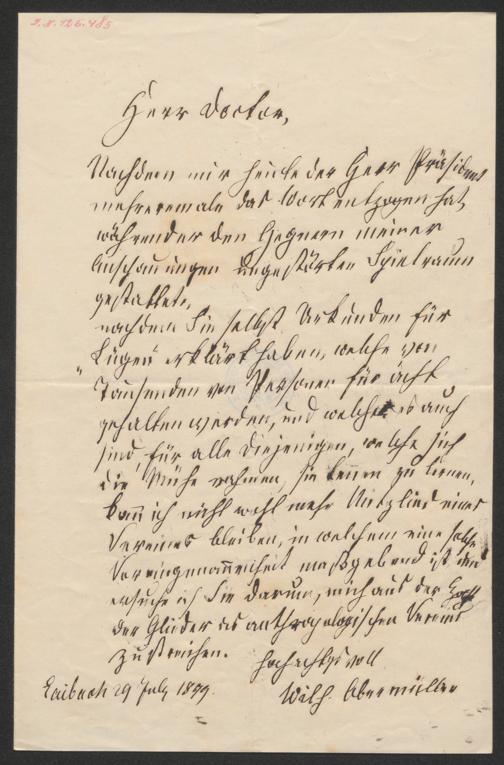 I.N. 126.485
Herr Doctor,
Nachdem mir heute der Herr Präsident
mehreremale das Wort entzogen hat,
während er den Gegnern meiner
Anschauungen ungestörten Spielraum
gestattete,
nachdem Sie selbst Urkunden für
"Lügen" erklärt haben, welche von
Tausenden von Personen für ächt
gehalten werden, und welche es auch
sind, für alle diejenigen, welche sich
die Mühe nahmen, sie kennen zu lernen,
kann ich nicht wohl mehr Mitglied eines
Vereines bleiben, in welchem eine solche
Voreingenommenheit maßgebend ist und
ersuche ich Sie darum, mich aus der
der Glieder des anthropologischen Vereins
zu streichen.
Hochachtungsvoll
Laibach 29 July 1879.
Wilh. Obermüller